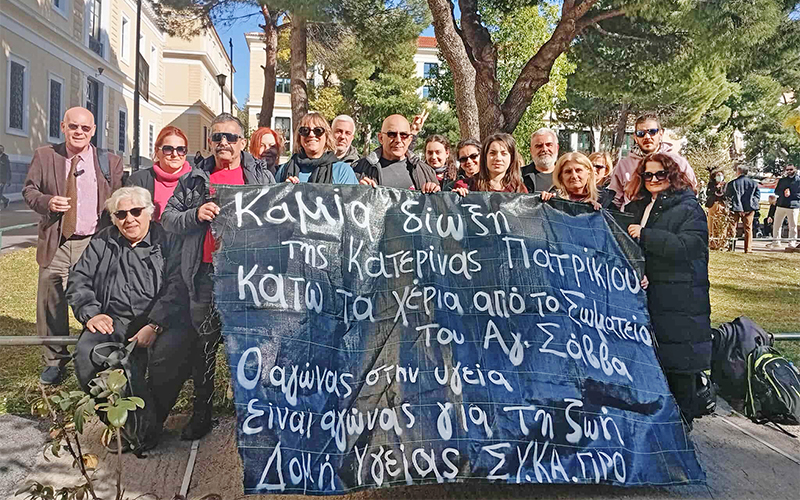 Καμία δίωξη
της Κατερίνας Πατρίκιου
Κάτω τα χέρια από το Σωματείο
του Αγ. Σάββα
Ο αγώνας στην υγεία
είναι αγώνας για τη ζωή
Δομή Υγείας ΣΥ.ΚΑ.ΠΡΟ